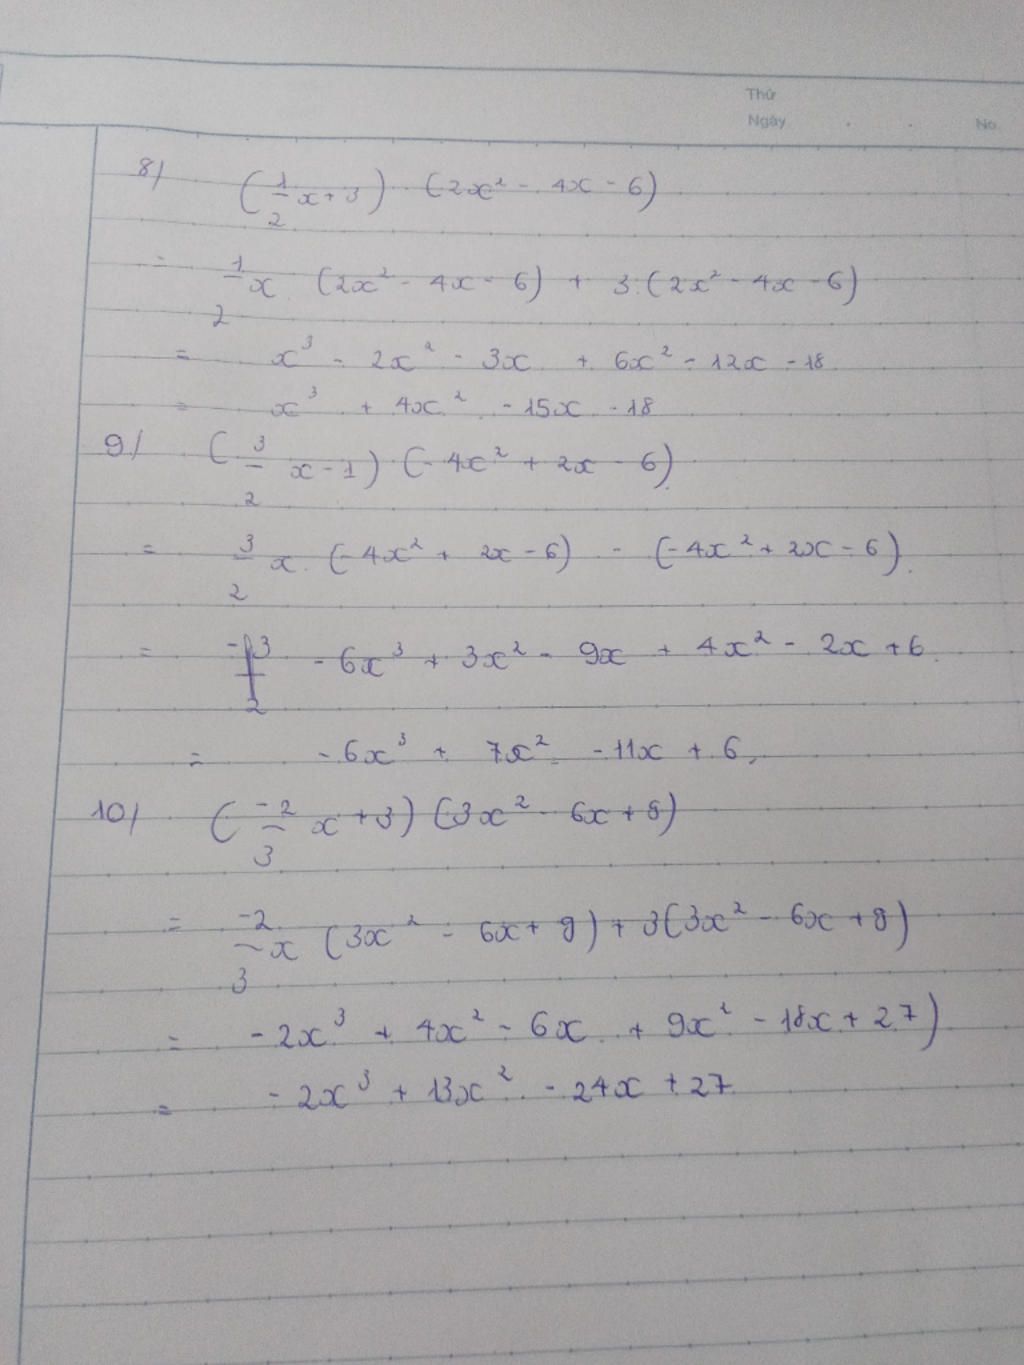 Thứ
Ngày
No
8/ (1/2 x + 3) (2x² - 4x - 6)
= 1/2 x. (2x² - 4x - 6) + 3.(2x² - 4x - 6)
= x³ - 2x² - 3x + 6x² - 12x - 18
= x³ + 4x² - 15x - 18
9/ (3/2 x - 1) (-4x² + 2x - 6).
= 3/2 x. (-4x² + 2x - 6) - (-4x² + 2x - 6).
= - 6x³ + 3x² - 9x + 4x² - 2x + 6.
= - 6x³ + 7x² - 11x + 6,
10/ (-2/3 x + 3) (3x² - 6x + 9)
= -2/3 x (3x² - 6x + 9) + 3(3x² - 6x + 9)
= - 2x³ + 4x² - 6x + 9x² - 18x + 27)
= - 2x³ + 13x² - 24x + 27